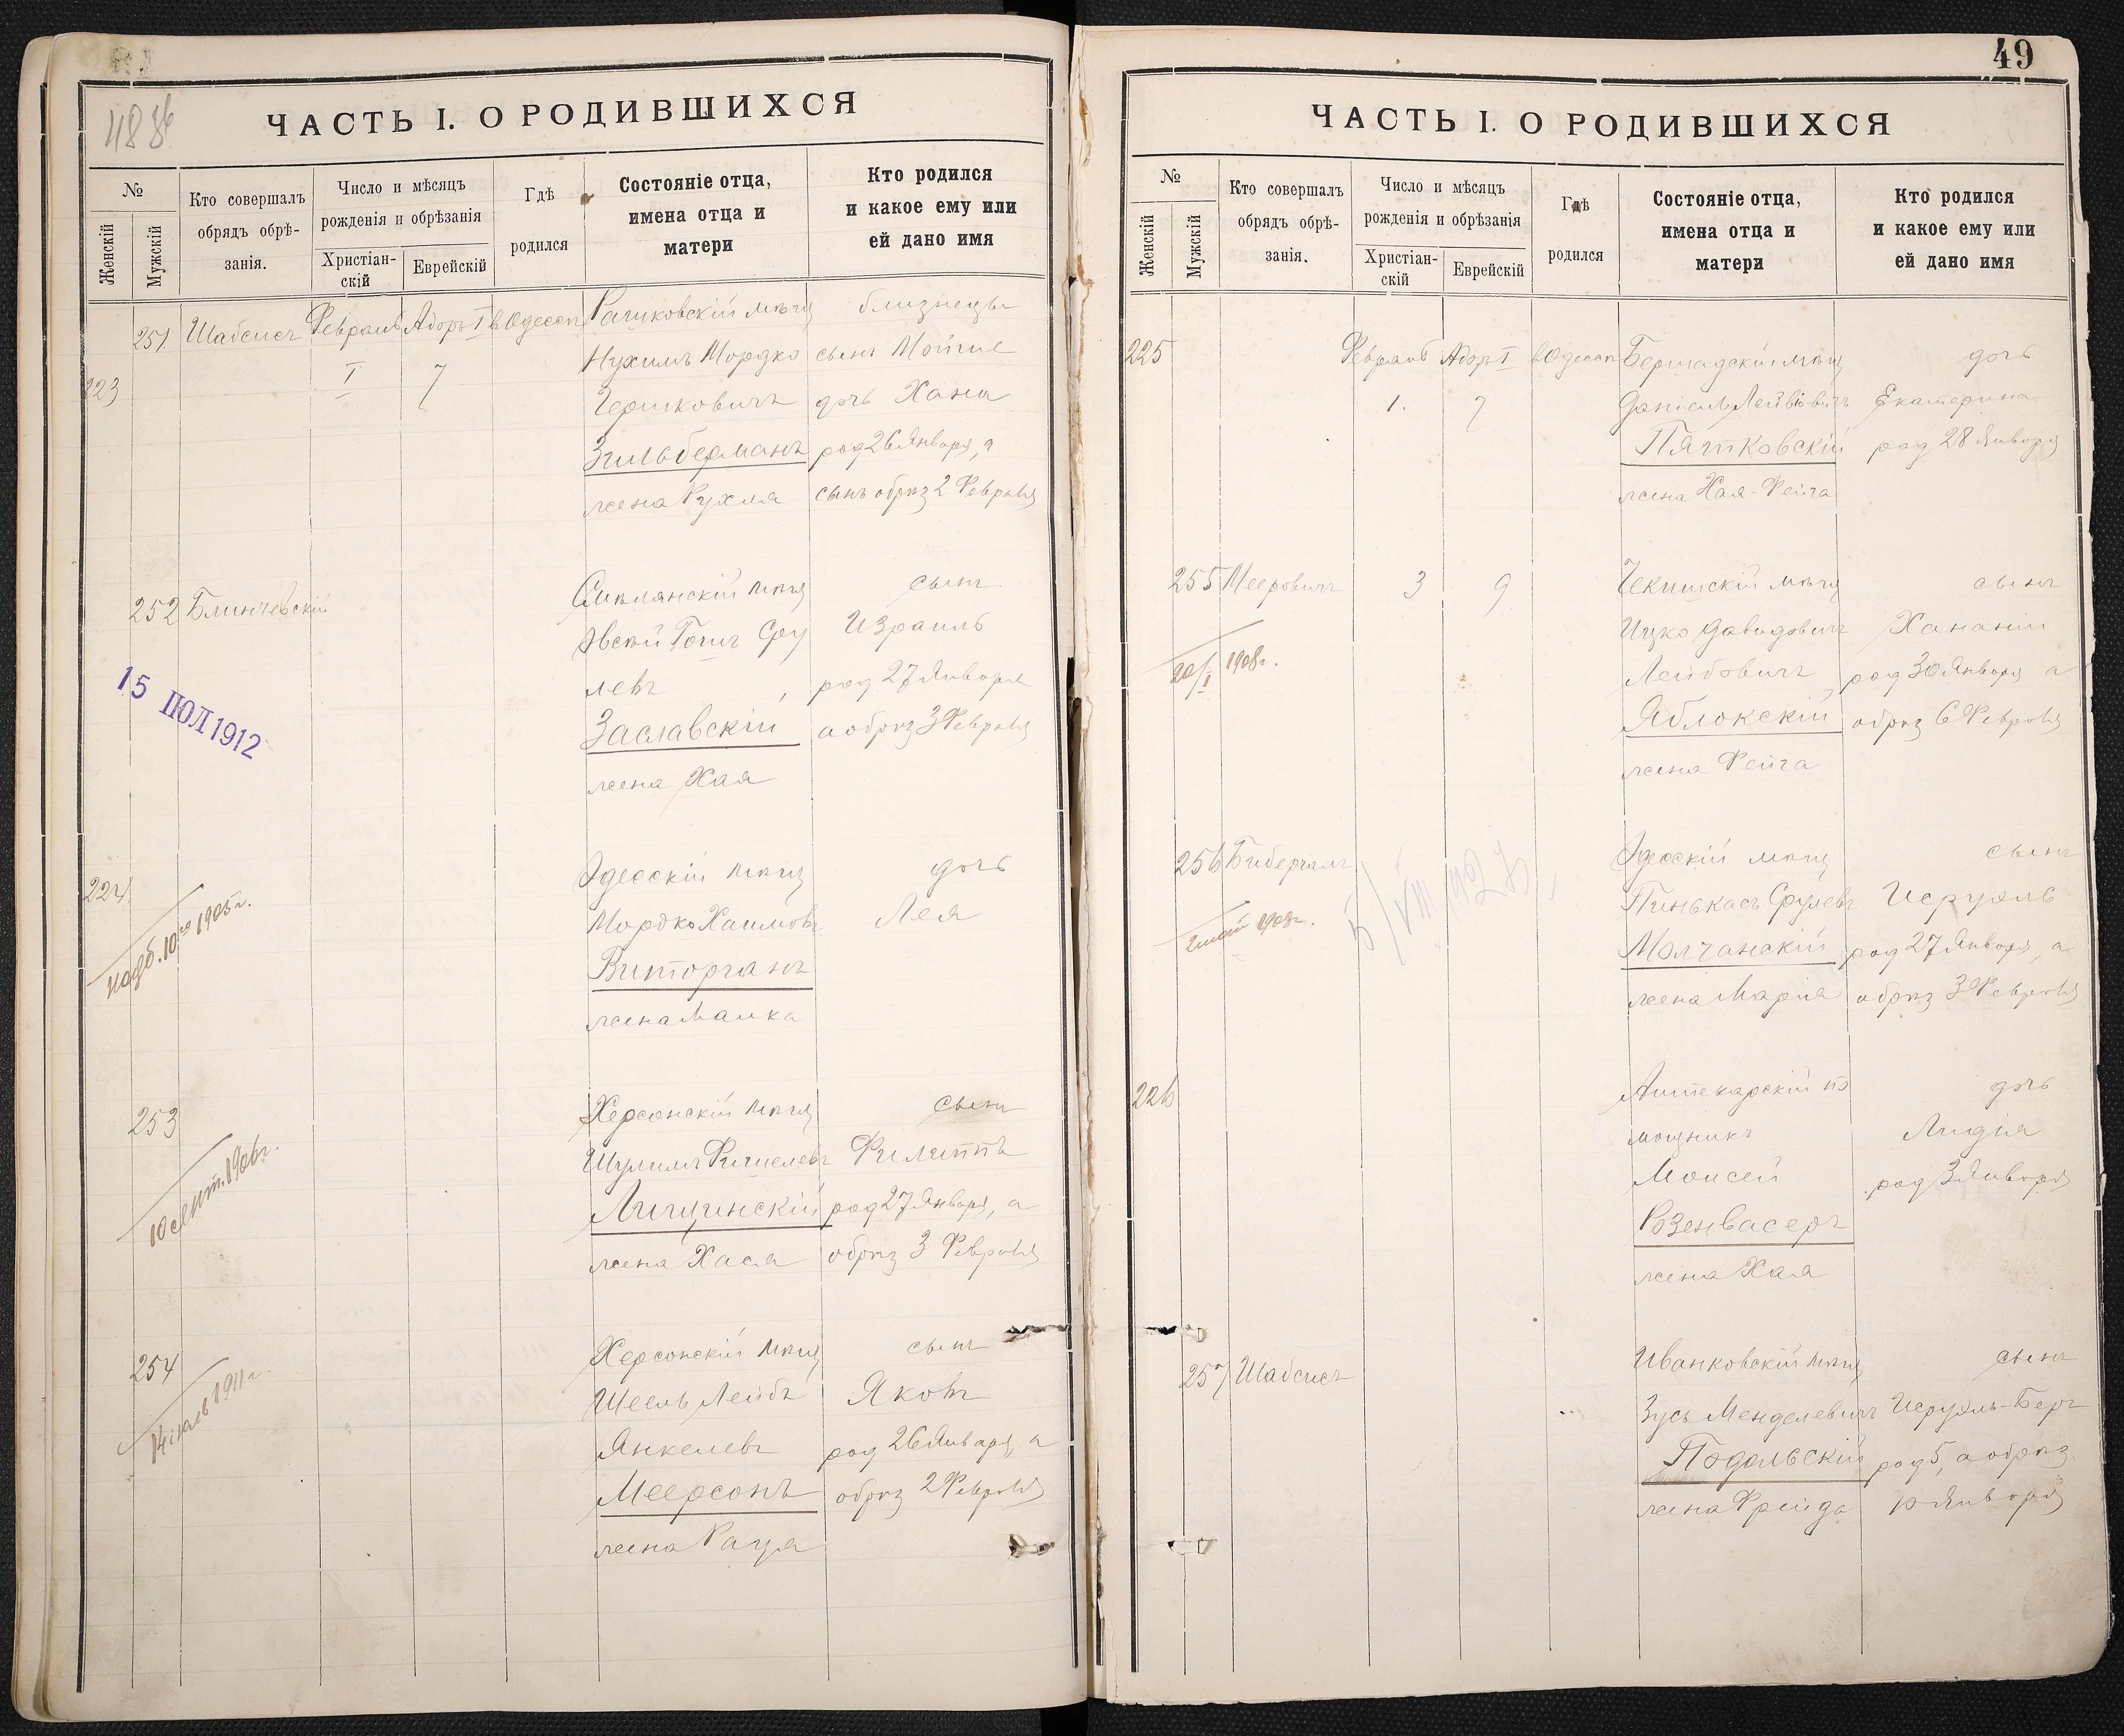 48 об
ЧАСТЬ I. О РОДИВШИХСЯ
№
Женскій
Мужскій
Кто совершалъ
обрядъ обрѣ-
занія.
Число и мѣсяцъ
рожденія и обрѣзанія
Христіан-
скій
Еврейскій
Гдѣ
родился
Состояніе отца,
имена отца и
матери
Кто родился
и какое ему или
ей дано имя
251 Шабсисъ Февраль Адоръ I в Одессѣ Рашковскій мѣщ близнецы
223 1 7 Нухимъ Мордко сынъ Мойше
Гершковичъ дочь Хана
Зильберманъ род 26 Января, а
жена Рухля сынъ обрѣз 2 Февраля
252 Блинчевскій мѣщ сынъ
Сру Израиль
левъ род 27 Января
15 ІЮЛ 1912
Заславскій а обрѣз 3 Февраля
жена Хая
224 Одесскій мѣщ дочь
Мордко Хаимовъ Лея
нояб. 10го 1905 г.
Виторганъ
жена Малка
253 Херсонскій мѣщ сынъ
Шулимъ Фишелевъ Филиппъ
10 сент. 1906 г.
Лищинскій род 27 Января, а
жена Хася обрѣз 3 Февраля
254 Херсонскій мѣщ сынъ
Лейбъ Яковъ
14 1911 г.
Янкелевъ род 26 Января, а
Меерсонъ обрѣз 2 Февраля
жена
49
ЧАСТЬ I. О РОДИВШИХСЯ
№
Женскій
Мужскій
Кто совершалъ
обрядъ обрѣ-
занія.
Число и мѣсяцъ
рожденія и обрѣзанія
Христіан-
скій
Еврейскій
Гдѣ
родился
Состояніе отца,
имена отца и
матери
Кто родился
и какое ему или
ей дано имя
225 Февраль Адоръ I в Одессѣ Бершадскій мѣщ дочь
1. 7 Даніель Лейбовичъ Екатерина
Пятковскій род 28 Января
жена Хая-Фейга
255 Мееровичъ 3 9 мѣщ сынъ
Ицко Давидовичъ Хананій
20/I 1908 г.
Лейбовичъ род 30 Января а
Яблокскій обрѣз 6 Февраля
жена Фейга
256 Бибергалъ Одесскій мѣщ сынъ
Пинькасъ Срулевъ Исруэль
1908 г.
5/VIII 1927
Молчанскій род 27 Января, а
жена Марія обрѣз 3 Февраля
226 Аптекарскій по дочь
мощникъ Лидія
Моисей род 3 Января
Розенвасеръ
жена Хая
257 Шабсисъ Иванковскій мѣщ сынъ
Зусь Менделевичъ Исруэль-Беръ
Подольскій род 5, а обрѣз
жена Фрейда 10 Января